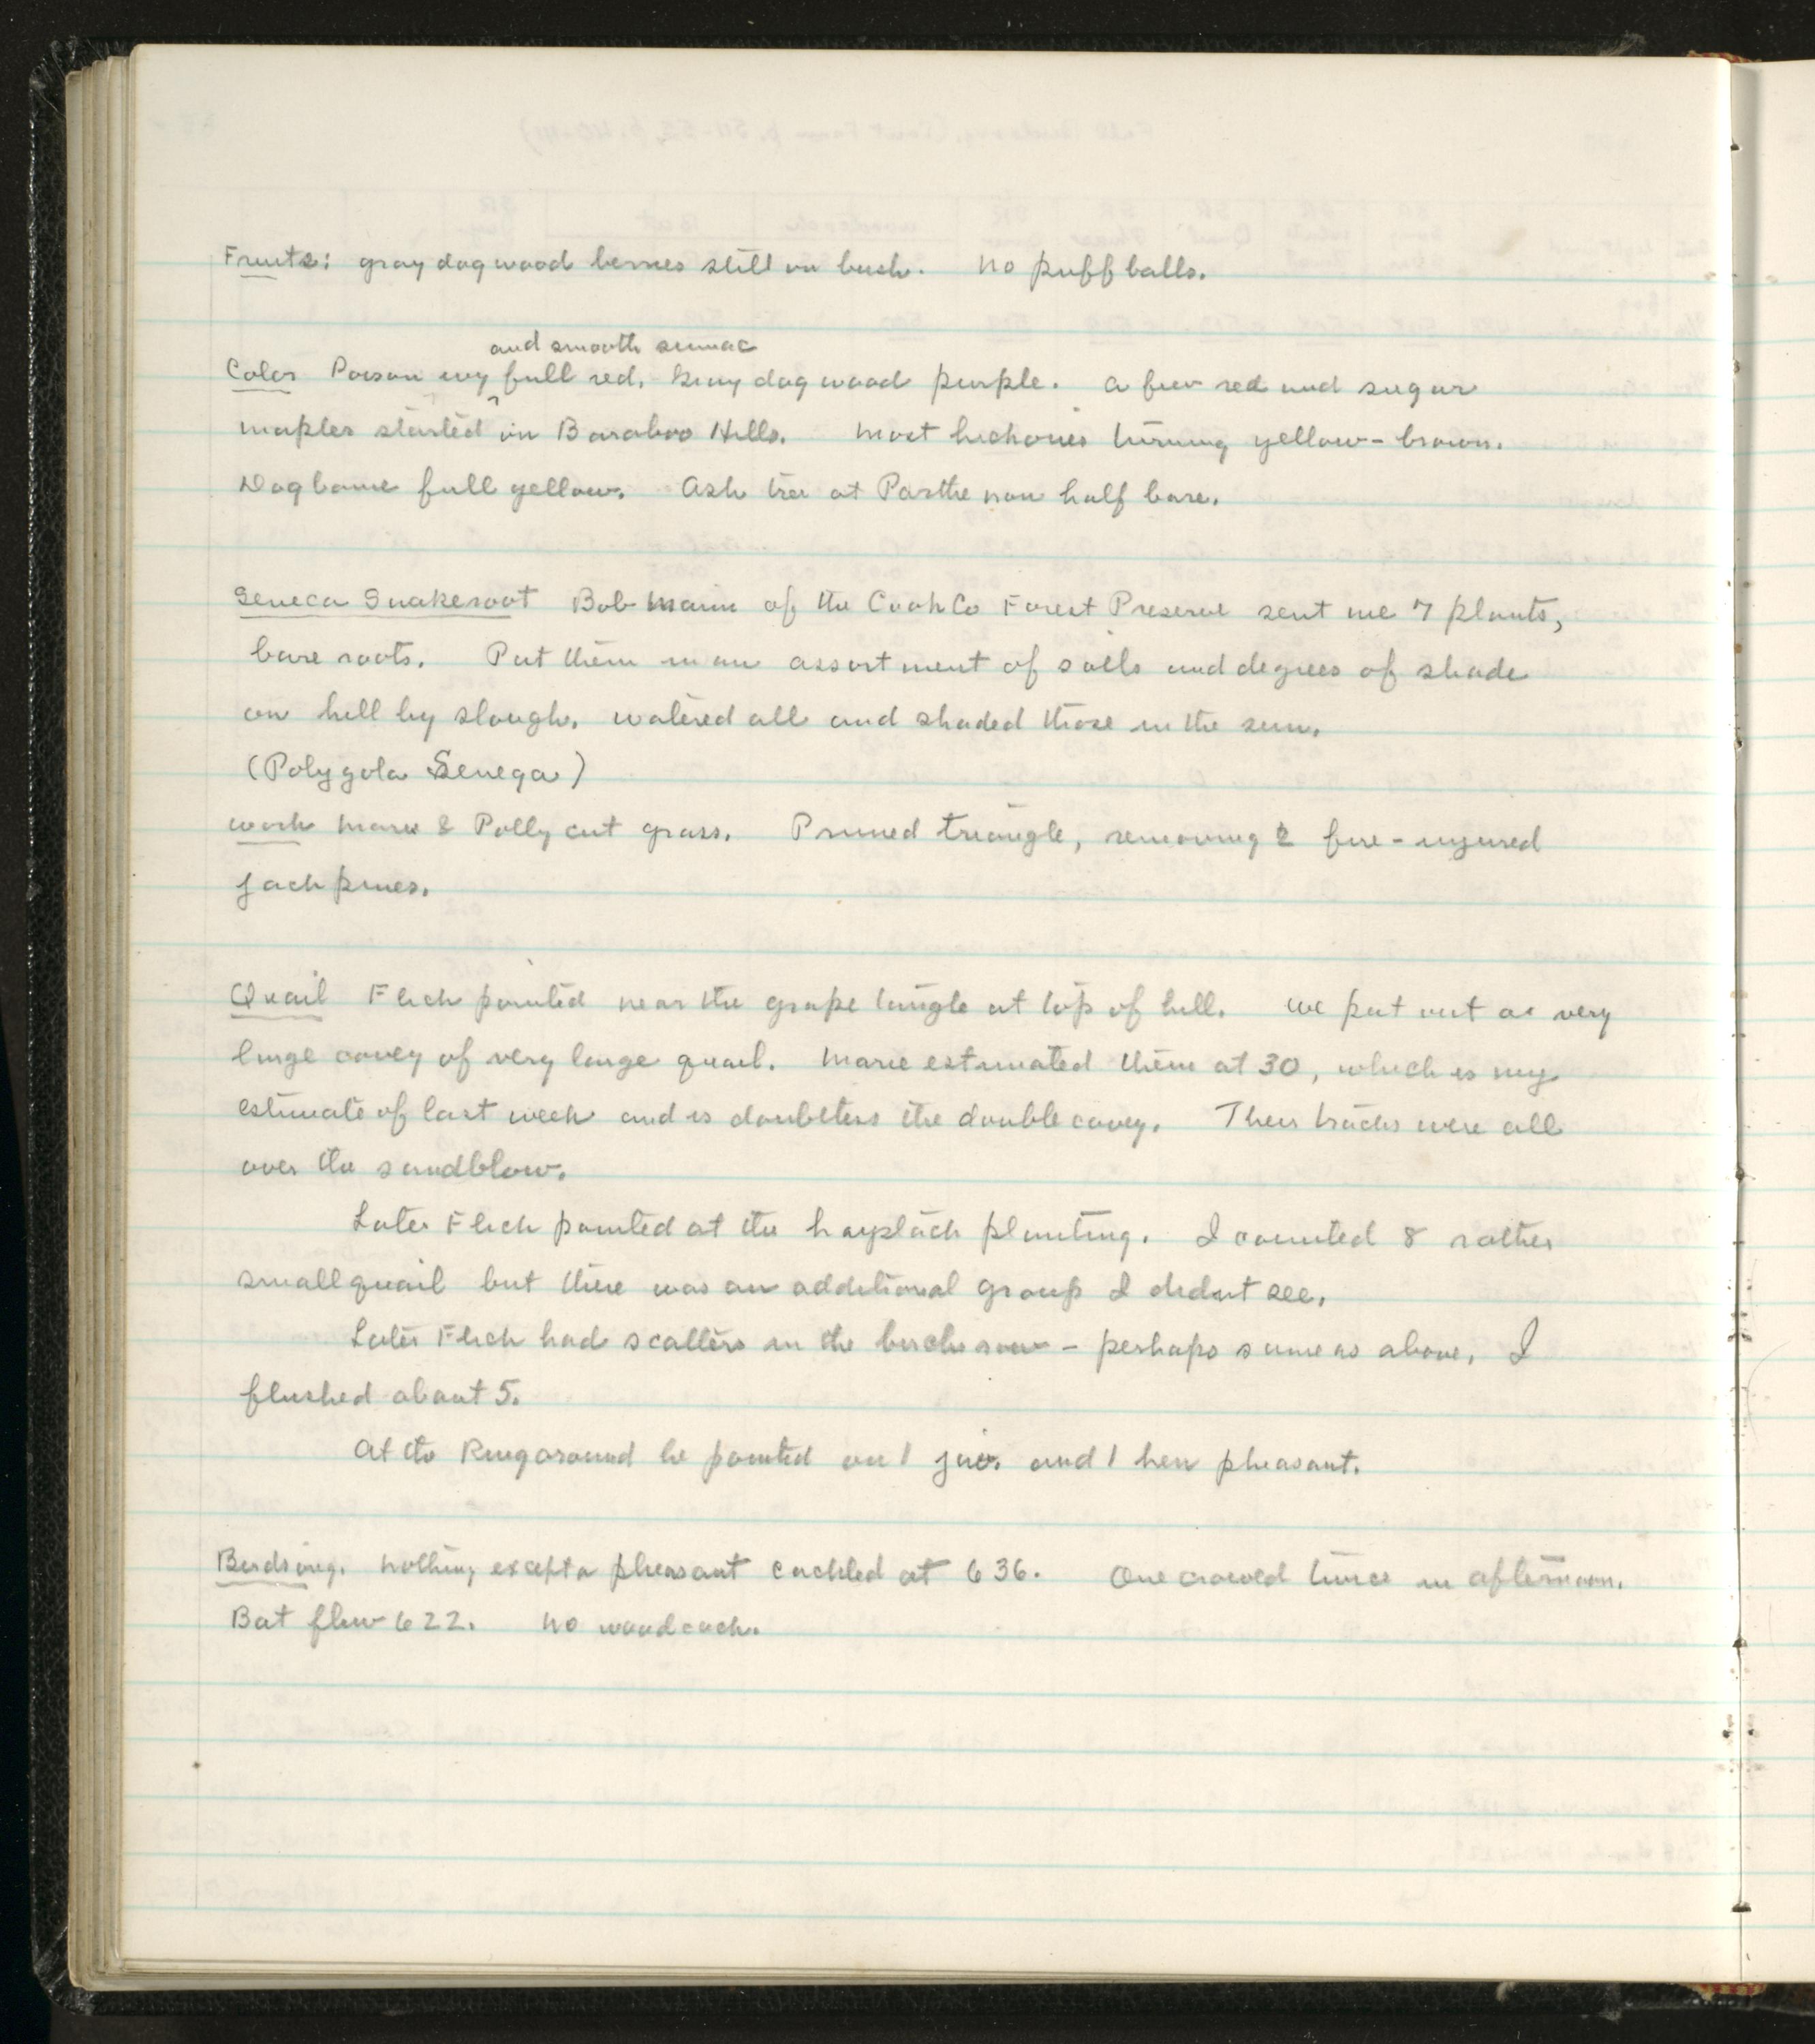 Fruits: gray dogwood berries still on bush. No puffballs.
and smooth sumac
Color Poison ivy full red, Gray dogwood purple. A few red and sugar
maples started in Baraboo Hills. Most hickories turning yellow-brown.
Dogbane full yellow. Ash tree at Parthenon half bare.
Seneca Snakeroot Bob Mann of the Cook Co Forest Preserve sent me 7 plants,
bare roots. Put them in an assortment of soils and degrees of shade
on hill by slough. Watered all and shaded those in the sun.
(Polygola Senega)
Work Marie & Polly cut grass. Pruned triangle, removing 2 fire-injured
jackpines.
Quail Flick pointed near the grape tangle at top of hill. We put out a very
large covey of very large quail. Marie estimated them at 30, which is my
estimate of last week and is doubtless the double covey. Their tracks were all
over the sandblow.
Later Flick pointed at the haystack planting. I counted 8 rather
small quail but there was an additional group I didnt see.
Later Flick had scatters in the birch row - perhaps same as above. I
flushed about 5.
At the Ringaround he pointed on 1 juv. and 1 hen pheasant.
Birdsong. Nothing except a pheasant cackled at 636. One crowed twice in afternoon.
Bat flew 622. No woodcock.